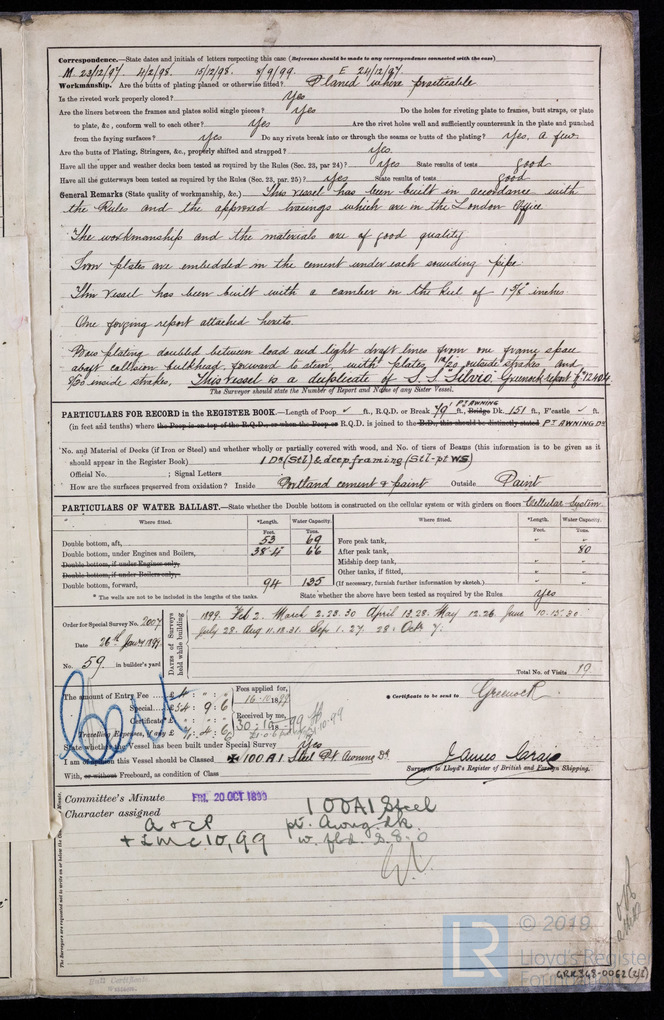 Correspondence.—State dates and initials of letters respecting this case (Reference should be made to any correspondence connected with the case)
M 23/12/97. 4/2/98. 15/12/98. 8/9/99. E 24/12/97.
Workmanship. Are the butts of plating planed or otherwise fitted? Planed where practicable
Is the riveted work properly closed? Yes
Are the liners between the frames and plates solid single pieces? Yes Do the holes for riveting plate to frames, butt straps, or plate
to plate, &c., conform well to each other? Yes Are the rivet holes well and sufficiently countersunk in the plate and punched
from the faying surfaces? Yes Do any rivets break into or through the seams or butts of the plating? Yes, a few
Are the butts of Plating, Stringers, &c., properly shifted and strapped? Yes
Have all the upper and weather decks been tested as required by the Rules (Sec. 23, par 24)? Yes State results of tests good
Have all the gutterways been tested as required by the Rules (Sec. 23, par. 25)? Yes State results of tests good
General Remarks (State quality of workmanship, &c.) This vessel has been built in accordance with
the Rules and the approved tracings which are in the London Office
The workmanship and the materials are of good quality
Iron plates are embedded in the cement under each sounding pipe
This vessel has been built with a camber in the keel of 1 5/8 inches
One forging report attached hereto.
Bow plating doubled between load and light draft lines from one frame space
abaft collision bulkhead forward to stem, with plates 10/20 outside strakes and
8/20 inside strakes. This vessel is a duplicate of S.S. "Silvio" Greenock report No 12404.
The Surveyor should state the Number of Report and Name of any Sister Vessel.
PARTICULARS FOR RECORD in the REGISTER BOOK.—Length of Poop ✓ ft., R.Q.D. or Break 79' ft., PT AWNING Bridge Dk. 151 ft., F'castle ✓ ft.
(in feet and tenths) where the Poop is on top of the R.Q.D., or when the Poop or R.Q.D. is joined to the B.D., this should be distinctly stated PT AWNING DK
No. and Material of Decks (if Iron or Steel) and whether wholly or partially covered with wood, and No. of tiers of Beams (this information is to be given as it
should appear in the Register Book) 1 Dk (Stl) & deep framing (Stl-pt WS)
Official No. ; Signal Letters
How are the surfaces preserved from oxidation? Inside Portland cement & paint Outside Paint
PARTICULARS OF WATER BALLAST.—State whether the Double bottom is constructed on the cellular system or with girders on floors Cellular System
Where fitted. *Length. Water Capacity. Where fitted. *Length. Water Capacity.
Feet. Tons. Feet. Tons.
Double bottom, aft, 53 69 Fore peak tank, " "
Double bottom, under Engines and Boilers, 38.4 66 After peak tank, " 80
Double bottom, if under Engines only, Midship deep tank, " "
Double bottom, if under Boilers only, Other tanks, if fitted, " "
Double bottom, forward, 94 135 (If necessary, furnish further information by sketch.) " "
* The wells are not to be included in the lengths of the tanks State whether the above have been tested as required by the Rules Yes
Order for Special Survey No. 2007
Date 26th Jany 1899.
No. 59 in builder's yard
DATES of Surveys held while building
1899. Feb 2. March 2.28.30 April 13.28. May 12.26. June 10.15.30
July 28. Aug 11.18.31. Sep 1.27.28. Oct 7.
Total No. of Visits 19
The amount of Entry Fee
Special
Certificate
Travelling Expenses, if any £
Fees applied for, 16-10-1899
Received by me,
* Certificate to be sent to Greenock
State whether the Vessel has been built under Special Survey Yes
I am of opinion this Vessel should be Classed ✠ 100A1 Steel Pt Awning Dk
With, or without Freeboard, as condition of Class
James Craig
Surveyor to Lloyd's Register of British and Foreign Shipping.
Committee's Minute FRI. 20 OCT 1899
Character assigned 100A1 Steel
a & c P pt. Awng. dk.
+ LMC 10,99 w. fbd. S.S.O
The Surveyors are requested not to write on or below the Committee's Minute.
© 2019
LR
Lloyd's Register
Foundation
GRK348-0062(2/2)